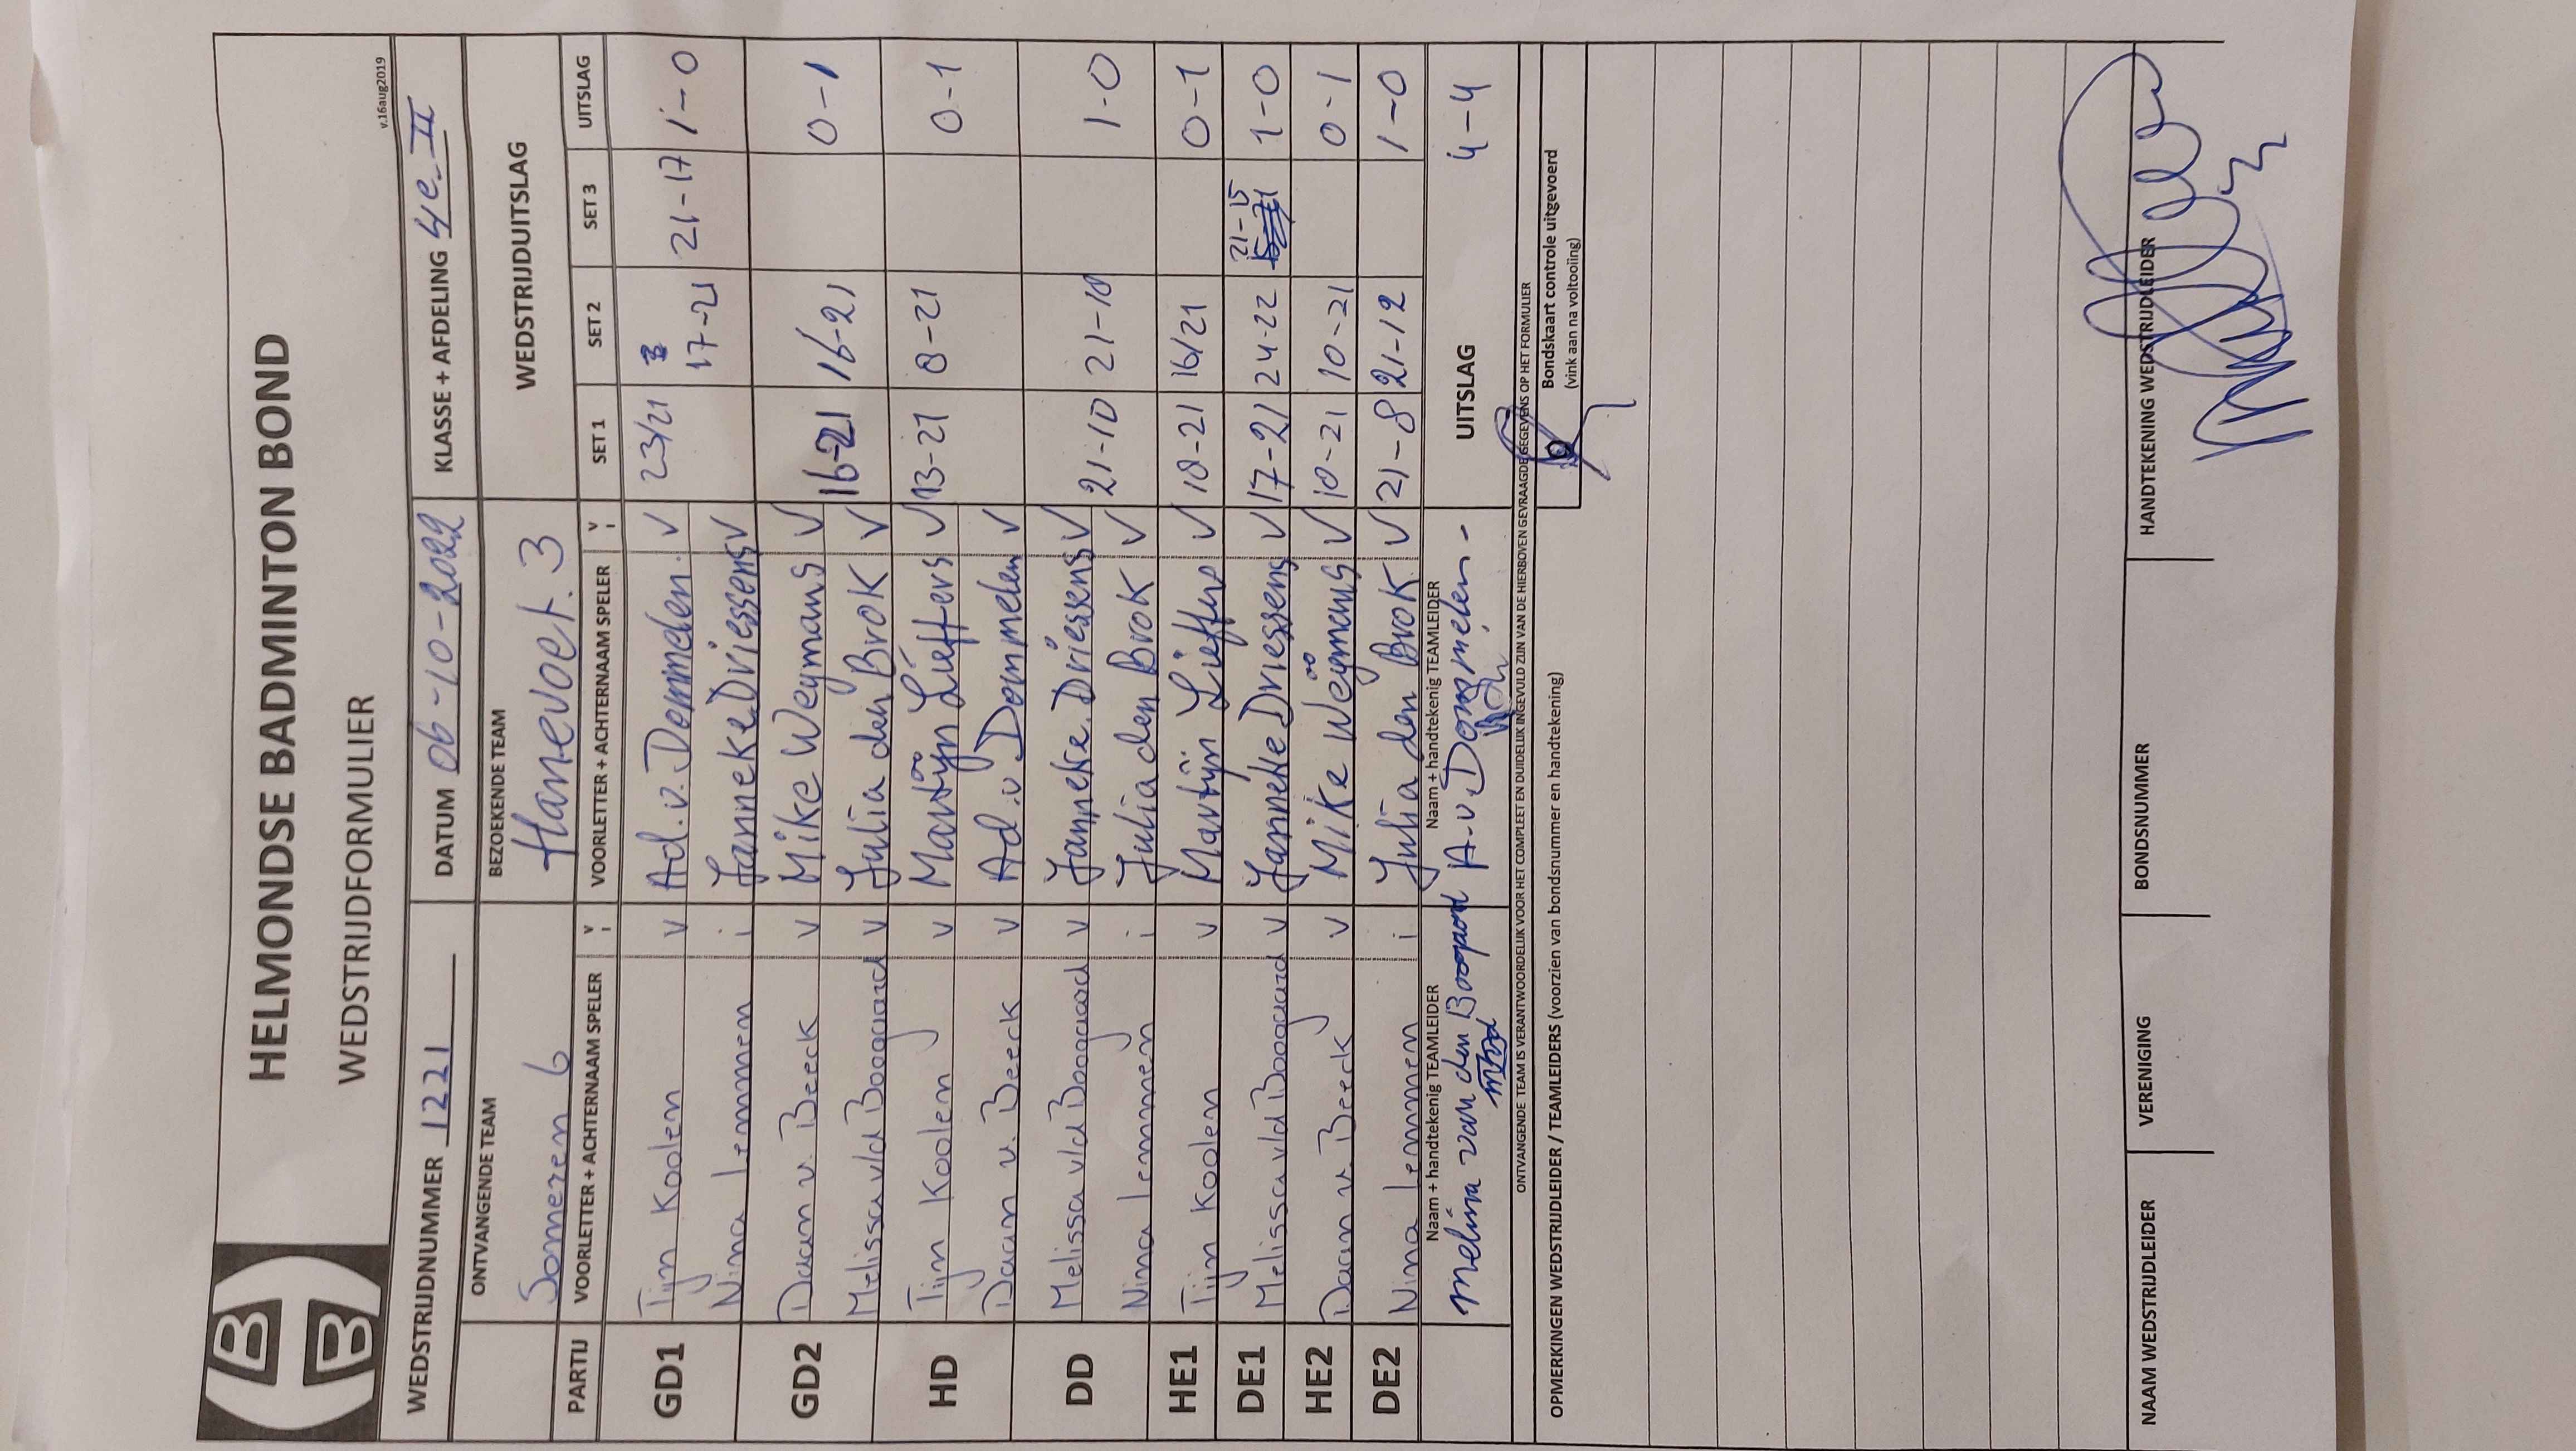 HELMONDSE BADMINTON BOND
WEDSTRIJDFORMULIER
v.16aug2019
WEDSTRIJDNUMMER 1221 DATUM 06-10-2022 KLASSE + AFDELING 4e II
ONTVANGENDE TEAM BEZOEKENDE TEAM WEDSTRIJDUITSLAG
Someren 6 Hanevoet. 3
PARTIJ VOORLETTER + ACHTERNAAM SPELER V I VOORLETTER + ACHTERNAAM SPELER V I SET 1 SET 2 SET 3 UITSLAG
GD1 Tijn Koolen v Ad. v. Dommelen. v 23/21 17-21 21-17 1-0
Nina Lemmen i Janneke Driessens v
GD2 Daan v. Beeck v Mike Weymans v 16-21 16-21 0-1
Melissa v/d Boogaard v Julia den Brok v
HD Tijn Koolen v Martijn Lieffers v 13-21 8-21 0-1
Daan v. Beeck v Ad. v Dommelen v
DD Melissa v/d Boogaard v Janneke Driessens v 21-10 21-10 1-0
Nina Lemmen i Julia den Brok v
HE1 Tijn Koolen v Martijn Lieffers v 10-21 16/21 0-1
DE1 Melissa v/d Boogaard v Janneke Driessens v 17-21 24-22 21-15 1-0
HE2 Daan v. Beeck v Mike Weymans v 10-21 10-21 0-1
DE2 Nina Lemmen i Julia den Brok v 21-8 21-12 1-0
Naam + handtekenig TEAMLEIDER Naam + handtekenig TEAMLEIDER UITSLAG 4-4
Melissa van den Boogaard A. v. Dommelen -
ONTVANGENDE TEAM IS VERANTWOORDELIJK VOOR HET COMPLEET EN DUIDELIJK INGEVULD ZIJN VAN DE HIERBOVEN GEVRAAGDE GEGEVENS OP HET FORMULIER
OPMERKINGEN WEDSTRIJDLEIDER / TEAMLEIDERS (voorzien van bondsnummer en handtekening) Bondskaart controle uitgevoerd
(vink aan na voltooiing)
NAAM WEDSTRIJDLEIDER VERENIGING BONDSNUMMER HANDTEKENING WEDSTRIJDLEIDER